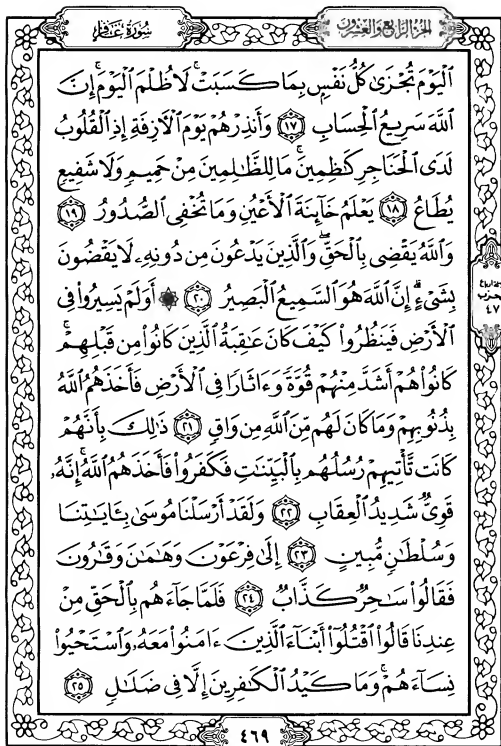 الجزء الرابع والعشرون
سورة غافر
ٱلۡيَوۡمَ تُجۡزَىٰ كُلُّ نَفۡسِۭ بِمَا كَسَبَتۡۚ لَا ظُلۡمَ ٱلۡيَوۡمَۚ إِنَّ
ٱللَّهَ سَرِيعُ ٱلۡحِسَابِ ١٧ وَأَنذِرۡهُمۡ يَوۡمَ ٱلۡأٓزِفَةِ إِذِ ٱلۡقُلُوبُ
لَدَى ٱلۡحَنَاجِرِ كَٰظِمِينَۚ مَا لِلظَّٰلِمِينَ مِنۡ حَمِيمٖ وَلَا شَفِيعٖ
يُطَاعُ ١٨ يَعۡلَمُ خَآئِنَةَ ٱلۡأَعۡيُنِ وَمَا تُخۡفِي ٱلصُّدُورُ ١٩
وَٱللَّهُ يَقۡضِي بِٱلۡحَقِّۖ وَٱلَّذِينَ يَدۡعُونَ مِن دُونِهِۦ لَا يَقۡضُونَ
بِشَيۡءٍۗ إِنَّ ٱللَّهَ هُوَ ٱلسَّمِيعُ ٱلۡبَصِيرُ ٢٠ ۞ أَوَلَمۡ يَسِيرُواْ فِي
ٱلۡأَرۡضِ فَيَنظُرُواْ كَيۡفَ كَانَ عَٰقِبَةُ ٱلَّذِينَ كَانُواْ مِن قَبۡلِهِمۡۚ
كَانُواْ هُمۡ أَشَدَّ مِنۡهُمۡ قُوَّةٗ وَءَاثَارٗا فِي ٱلۡأَرۡضِ فَأَخَذَهُمُ ٱللَّهُ
بِذُنُوبِهِمۡ وَمَا كَانَ لَهُم مِّنَ ٱللَّهِ مِن وَاقٖ ٢١ ذَٰلِكَ بِأَنَّهُمۡ
كَانَت تَّأۡتِيهِمۡ رُسُلُهُم بِٱلۡبَيِّنَٰتِ فَكَفَرُواْ فَأَخَذَهُمُ ٱللَّهُۚ إِنَّهُۥ
قَوِيّٞ شَدِيدُ ٱلۡعِقَابِ ٢٢ وَلَقَدۡ أَرۡسَلۡنَا مُوسَىٰ بِـَٔايَٰتِنَا
وَسُلۡطَٰنٖ مُّبِينٍ ٢٣ إِلَىٰ فِرۡعَوۡنَ وَهَٰمَٰنَ وَقَٰرُونَ
فَقَالُواْ سَٰحِرٞ كَذَّابٞ ٢٤ فَلَمَّا جَآءَهُم بِٱلۡحَقِّ مِنۡ
عِندِنَا قَالُواْ ٱقۡتُلُوٓاْ أَبۡنَآءَ ٱلَّذِينَ ءَامَنُواْ مَعَهُۥ وَٱسۡتَحۡيُواْ
نِسَآءَهُمۡۚ وَمَا كَيۡدُ ٱلۡكَٰفِرِينَ إِلَّا فِي ضَلَٰلٖ ٢٥
٤٧
٤٦٩